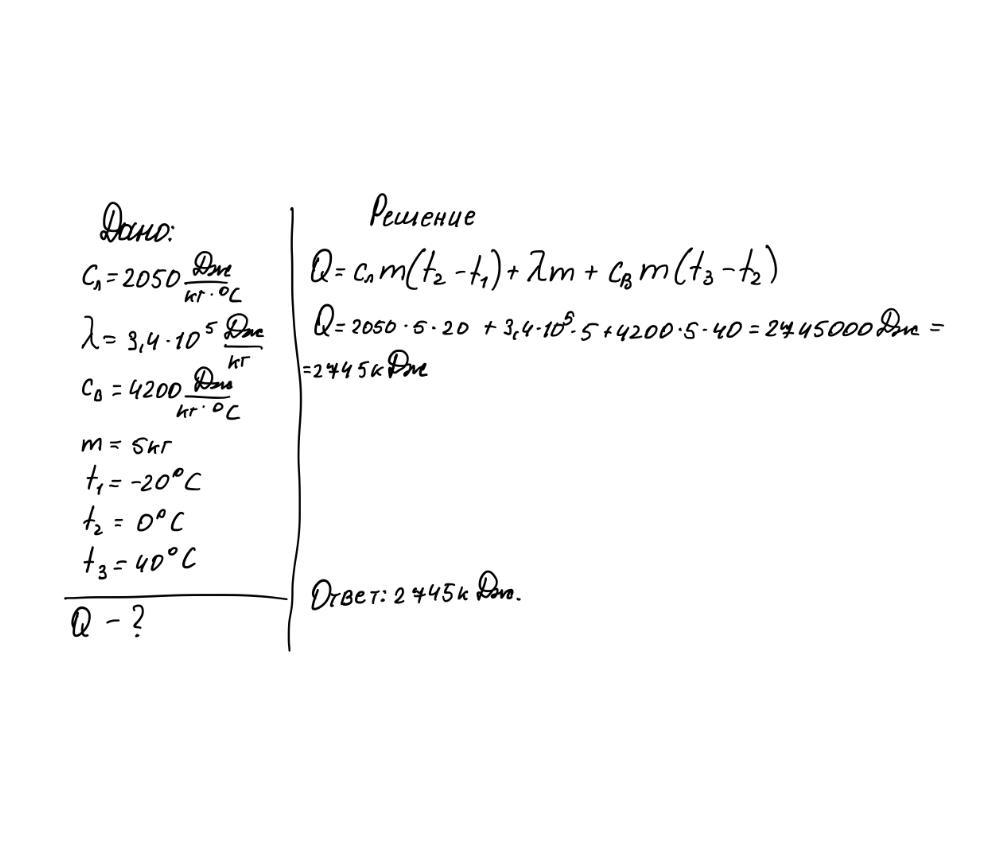 Дано:
Cл = 2050 Дж/кг·°C
λ = 3,4·10⁵ Дж/кг
Cв = 4200 Дж/кг·°C
m = 5кг
t₁ = -20°C
t₂ = 0°C
t₃ = 40°C
Q - ?
Решение
Q = cл m(t₂ - t₁) + λm + cв m(t₃ - t₂)
Q = 2050·5·20 + 3,4·10⁵·5 + 4200·5·40 = 2745000 Дж =
= 2745кДж
Ответ: 2745кДж.